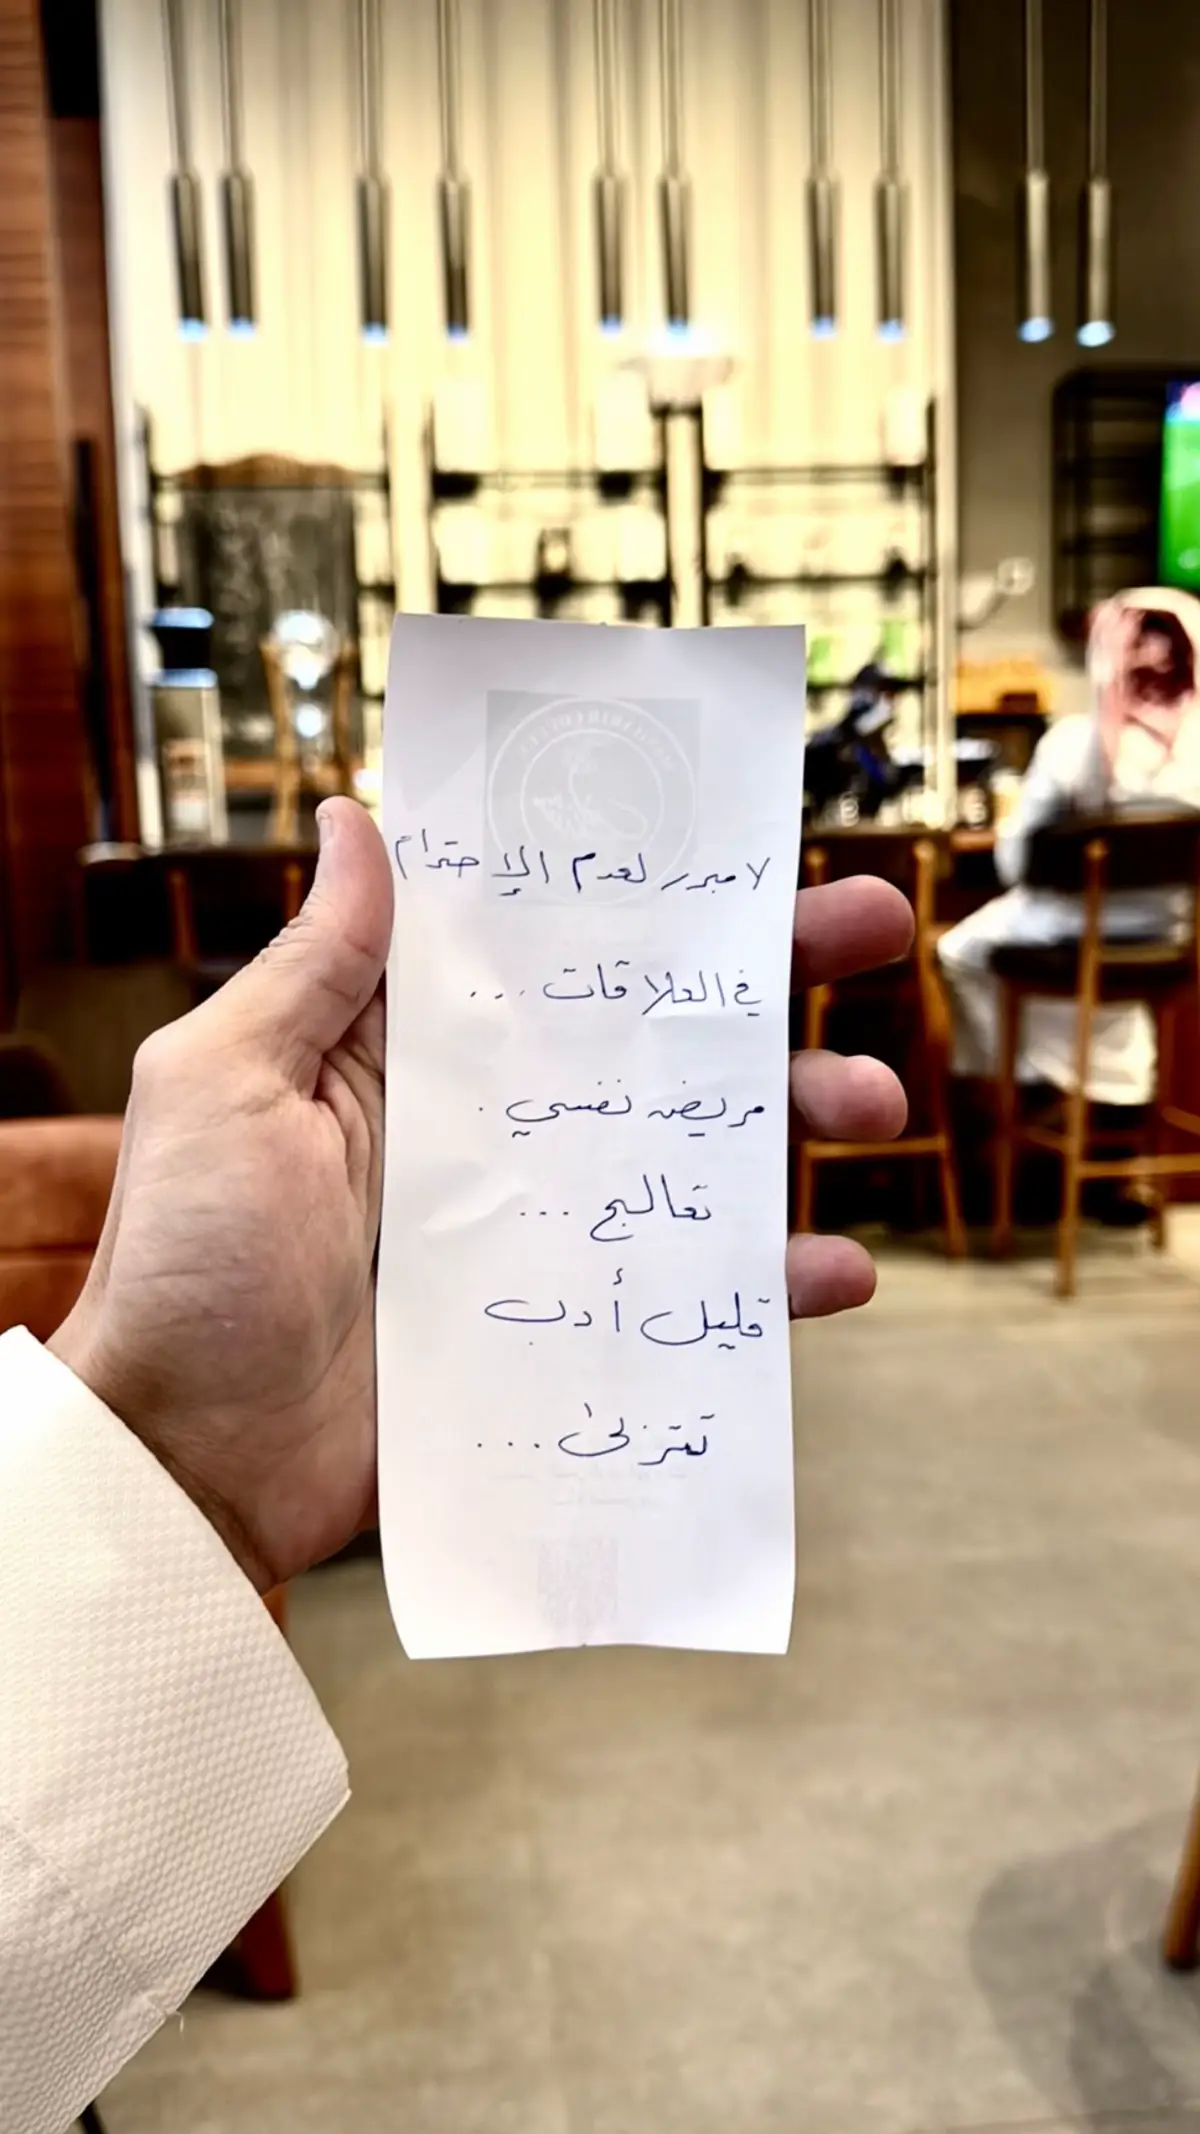 لا مبرر لعدم الإحترام
في العلاقات ...
مريض نفسي .
تعالج ...
قليل أدب
تربى ...